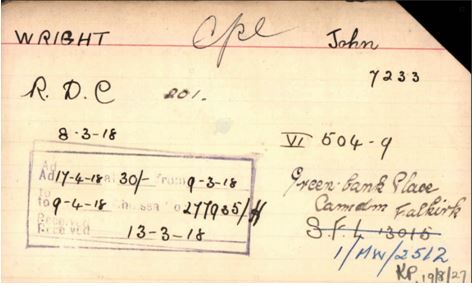 WRIGHT Cpl John
7233
R. D. C 201.
8-3-18
VI 504-9
Ad 17-4-18 30/- from 9-3-18
to 9-4-18 Chelsea No 277935/H
Received 13-3-18
Green bank Place
Camdm Falkirk
S.F.L 13015
1/MW/2512
KP. 19/8/27